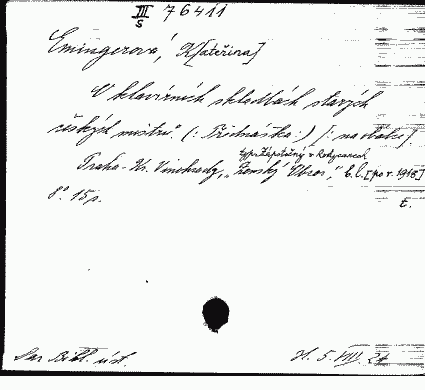 III 76411
S
Emingerová, K[ateřina]
O klavírních skladbách starých
českých mistrů. (: Přednáška :) [: na obálce].
typ. Zápotočný v Rokycanech
Praha - Kr. Vinohrady, „Ženský Obzor", b. l. [po r. 1918]
8° 15 s.
Dar Bibl. úst.